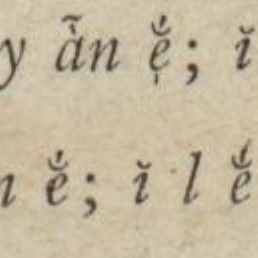 y à̃n ẹ̆́; ĭ
n ĕ́; ĭ l ĕ́